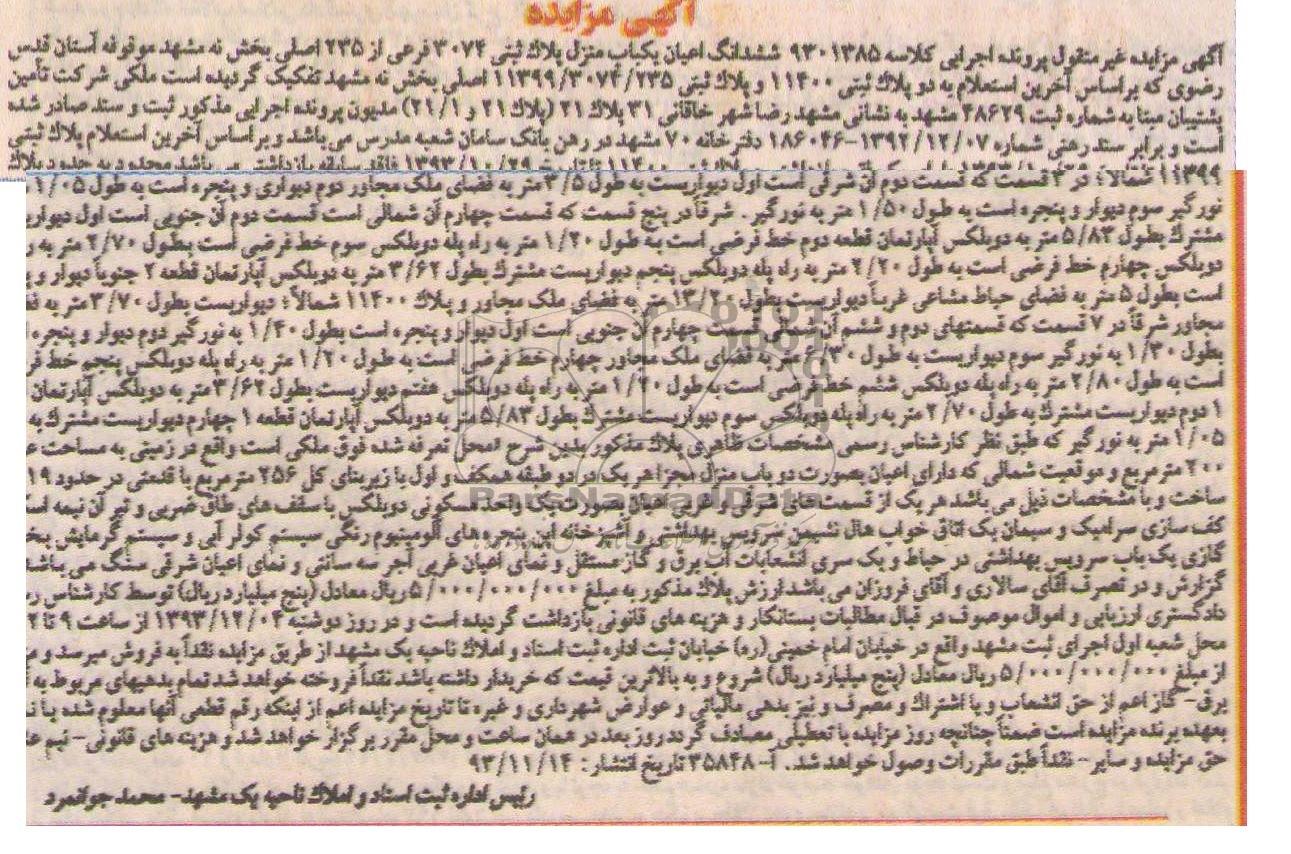 آگهی مزایده
آگهی مزایده غیر منقول پرونده اجرایی کلاسه ۹۳۰۱۳۸۵ ششدانگ اعیان یکباب منزل پلاک ثبتی ۳۰۷۴ فرعی از ۲۳۵ اصلی بخش نه مشهد موقوفه آستان قدس
رضوی که براساس آخرین استعلام به دو پلاک ثبتی ۱۱۴۰۰ و پلاک ثبتی ۱۱۳۹۹/۳۰۷۴/۲۳۵ اصلی بخش نه مشهد تفکیک گردیده است ملکی شرکت تأمین
پشتیبان مبنا به شماره ثبت ۲۸۶۲۹ مشهد به نشانی مشهد رضا شهر خاقانی ۳۱ پلاک ۲۱ (پلاک ۲۱ و ۲۱/۱) مدیون پرونده اجرایی مذکور ثبت و سند صادر شده
است و برابر سند رهنی شماره ۱۸۶۰۴۶-۱۳۹۲/۱۲/۰۷ دفترخانه ۷۰ مشهد در رهن بانک سامان شعبه مدرس می باشد و براساس آخرین استعلام پلاک ثبتی
۱۱۳۹۹ شمالاً؛ در ۳ قسمت که قسمت دوم آن شرقی است اول دیواریست به طول ۳/۵ متر به فضای ملک مجاور دوم دیواری و پنجره است به طول ۱/۰۵
نورگیر سوم دیوار و پنجره است به طول ۱/۵۰ متر به نورگیر. شرقاً در پنج قسمت که قسمت چهارم آن شمالی است قسمت دوم آن جنوبی است اول
مشترک بطول ۵/۸۳ متر به دوبلکس آپارتمان قطعه دوم خط فرضی است به طول ۱/۲۰ متر به راه پله دوبلکس سوم خط فرضی است بطول ۲/۷۰ متر به
دوبلکس چهارم خط فرضی است به طول ۲/۲۰ متر به راه پله دوبلکس پنجم دیواریست مشترک بطول ۳/۶۲ متر به دوبلکس آپارتمان قطعه ۲ جنوباً دیوار و
است بطول ۵ متر به فضای حیاط مشاعی غرباً دیواریست بطول ۱۳/۲۰ متر به فضای ملک مجاور و پلاک ۱۱۴۰۰ شمالاً؛ دیواریست بطول ۳/۷۰ متر به
مجاور شرقاً در ۷ قسمت که قسمتهای دوم و ششم آن شمالی قسمت چهارم آن جنوبی است اول دیوار و پنجره است بطول ۱/۴۰ به نورگیر دوم دیوار و پنجره
بطول ۱/۳۰ به نورگیر سوم دیواریست به طول ۶/۳۰ متر به فضای ملک مجاور چهارم خط فرضی است به طول ۱/۲۰ متر به راه پله دوبلکس پنجم خط
است به طول ۲/۸۰ متر به راه پله دوبلکس ششم خط فرضی است به طول ۱/۲۰ متر به راه پله دوبلکس هفتم دیواریست بطول ۳/۶۲ متر به دوبلکس آپارتمان
۱ دوم دیواریست مشترک به طول ۲/۷۰ متر به راه پله دوبلکس سوم دیواریست مشترک بطول ۵/۸۳ متر به دوبلکس آپارتمان قطعه ۱ چهارم دیواریست مشترک به
۱/۰۵ متر به نورگیر که طبق نظر کارشناس رسمی مشخصات ظاهری پلاک مذکور بدین شرح «محل تعرفه شده فوق ملکی است واقع در زمینی به مساحت
۲۰۰ متر مربع و موقعیت شمالی که دارای اعیان بصورت دو باب منزل مجزا هر یک در دو طبقه همکف و اول با زیربنای کل ۲۵۶ مترمربع با قدمتی در حدود ۱۹
ساخت و با مشخصات ذیل می باشد هر یک از قسمت های شرقی و غربی اعیان بصورت یک واحد مسکونی دوبلکس با سقف های طاق ضربی و تیر آن نیمه
کف سازی سرامیک و سیمان یک اتاق خواب هال نشیمن سرویس بهداشتی و آشپزخانه اپن پنجره های آلومینیوم رنگی سیستم کولر آبی و سیستم گرمایش
گازی یک باب سرویس بهداشتی در حیاط و یک سری انشعابات آب برق و گاز مستقل و نمای اعیان غربی آجر سه سانتی و نمای اعیان شرقی سنگ می باشد
گزارش و در تصرف آقای سالاری و آقای فروزان می باشد ارزش پلاک مذکور به مبلغ ۵/۰۰۰/۰۰۰/۰۰۰ ریال معادل (پنج میلیارد ریال) توسط کارشناس
دادگستری ارزیابی و اموال موصوف در قبال مطالبات بستانکار و هزینه های قانونی بازداشت گردیده است و در روز دوشنبه ۱۳۹۳/۱۲/۰۴ از ساعت ۹ تا
محل شعبه اول اجرای ثبت مشهد واقع در خیابان امام خمینی(ره) خیابان ثبت اداره ثبت اسناد و املاک ناحیه یک مشهد از طریق مزایده نقداً به فروش میرسد و
از مبلغ ۵/۰۰۰/۰۰۰/۰۰۰ ریال معادل (پنج میلیارد ریال) شروع و به بالاترین قیمت که خریدار داشته باشد نقداً فروخته خواهد شد تمام بدهیهای مربوط به
برق- گاز اعم از حق انشعاب و یا اشتراک و مصرف و نیز بدهی مالیاتی و عوارض شهرداری و غیره تا تاریخ مزایده اعم از اینکه رقم قطعی آنها معلوم شده یا
بعهده برنده مزایده است ضمناً چنانچه روز مزایده با تعطیلی مصادف گردد روز بعد در همان ساعت و محل مقرر برگزار خواهد شد و هزینه های قانونی- نیم
حق مزایده و سایر- نقداً طبق مقررات وصول خواهد شد. آ-۳۵۸۴۸ تاریخ انتشار: ۹۳/۱۱/۱۴
رئیس اداره ثبت اسناد و املاک ناحیه یک مشهد- محمد جوانمرد
ParsNamadData